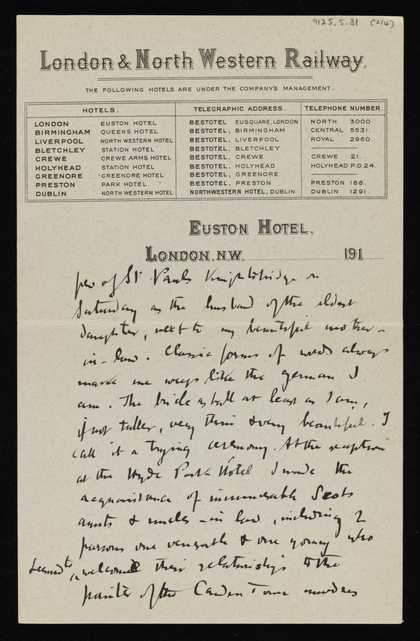 9125.5.31 (2/4)
London & North Western Railway.
THE FOLLOWING HOTELS ARE UNDER THE COMPANY'S MANAGEMENT.
HOTELS. TELEGRAPHIC ADDRESS. TELEPHONE NUMBER.
LONDON EUSTON HOTEL BESTOTEL, EUSQUARE, LONDON NORTH 3000
BIRMINGHAM QUEENS HOTEL BESTOTEL, BIRMINGHAM CENTRAL 5531.
LIVERPOOL NORTH WESTERN HOTEL BESTOTEL, LIVERPOOL ROYAL 2960
BLETCHLEY STATION HOTEL BESTOTEL, BLETCHLEY
CREWE CREWE ARMS HOTEL BESTOTEL, CREWE CREWE 21.
HOLYHEAD STATION HOTEL BESTOTEL, HOLYHEAD HOLYHEAD P.O.24.
GREENORE GREENORE HOTEL BESTOTEL, GREENORE
PRESTON PARK HOTEL BESTOTEL, PRESTON PRESTON 188.
DUBLIN NORTH WESTERN HOTEL NORTHWESTERN HOTEL, DUBLIN DUBLIN 1291.
EUSTON HOTEL,
LONDON, N.W. 191
pew of St Pauls Knightsbridge on
Saturday as the husband of the eldest
daughter, next to my beautiful mother-
in-law. Classic forms of words always
make me weep like the german I
am. The bride is tall at least as I am,
if not taller, very thin & very beautiful. I
call it a trying ceremony. At the reception
at the Hyde Park Hotel I made the
acquaintance of innumerable Scots
aunts & uncles-in-law, including 2
parsons one venerable & one young who
seemed to welcome their relationship to the
painter of the Camden Town murders